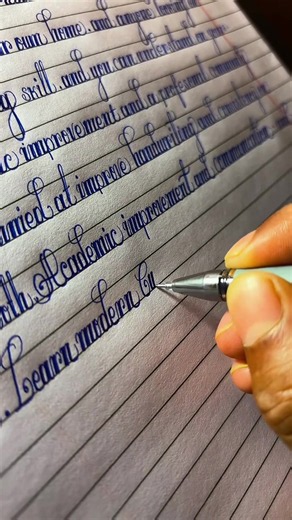 our own home, and
skill, and you can
improvement and a professional
aimed at improve handwriting and
with Academic improvement and communication
Learn modern Cu